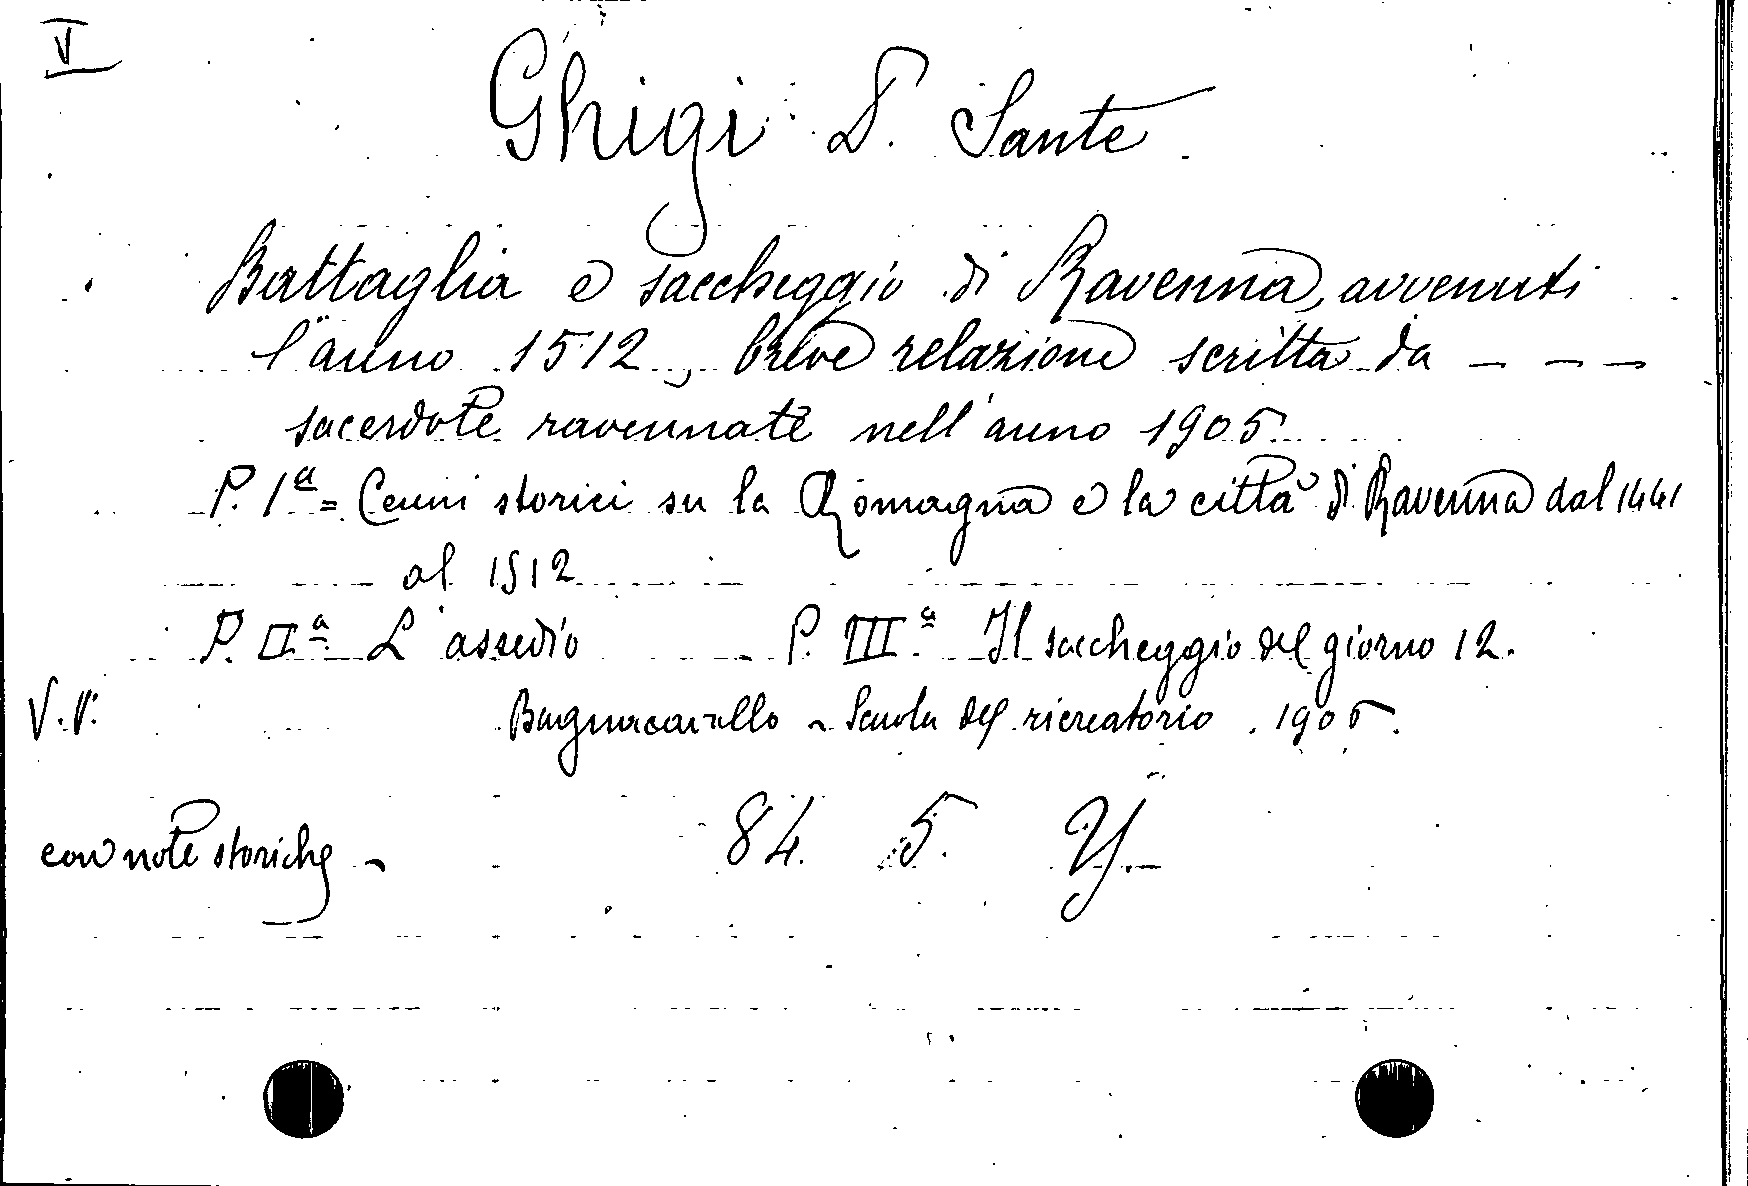 V
Ghigi D. Sante
Battaglia e saccheggio di Ravenna, avvenuti
l'anno 1512, breve relazione scritta da - - -
sacerdote ravennate nell'anno 1905
P. Iª = Cenni storici su la Romagna e la città di Ravenna dal 1441
al 1512
P. IIª L'assedio P. IIIª Il saccheggio del giorno 12.
V.V. Bagnacavallo - Scuola del ricreatorio. 1905.
con note storiche - 84. 5. Y.